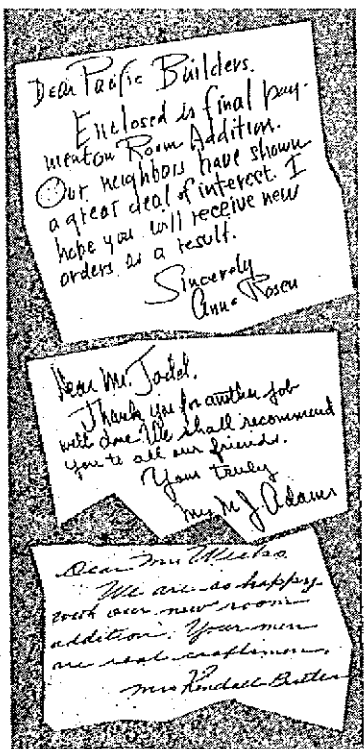 Dear Pacific Builders.
Enclosed is final pay-
ment on Room Addition.
Our neighbors have shown
a great deal of interest. I
hope you will receive new
orders as a result.
Sincerely
Ann Rosen
Dear Mr.
Thank you for another job
well done. We shall recommend
you to all our friends.
Yours truly
Mrs M J Adams
Dear Mr
We are so happy
with our new room
addition. Your men
are real craftsmen.
Mrs Kendall Butler